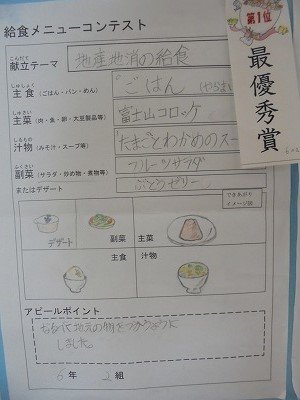 給食メニューコンテスト
第1位
最優秀賞
こんだて
献立テーマ 地産地消の給食
しゅしょく
主食(ごはん・パン・めん) ごはん
しゅさい
主菜(肉・魚・卵・大豆製品等) 富士山コロッケ
しるもの
汁物(みそ汁・スープ等) たまごとわかめのスー
ふくさい
副菜(サラダ・炒め物・煮物等) フルーツサラダ
またはデザート ぶどうゼリー
できあがり
イメージ図
デザート 副菜 主菜
主食 汁物
アピールポイント
なるべく地元の物をつかうように
しました。
6年 2組